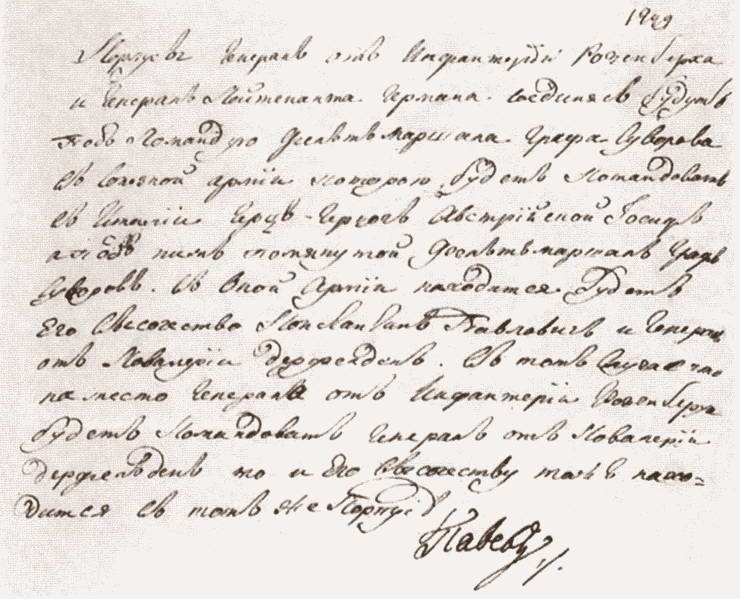 1799
Корпусъ Генерала отъ Инфантеріи Розенберха
и Генералъ Лейтенанта Германа соединясь будутъ
подъ командую Фельтъмаршала Графа Суворова
въ союзной арміи которою будетъ командовать
въ Италіи Ерцъ-Герцогъ Австрійской Іосифъ
а подъ нимъ помянутой Фельтъмаршалъ Графъ
Суворовъ. въ оной Арміи находится будетъ
Его Высочество Констанкинъ Павловичъ и Генералъ
отъ Кавалеріи Дерфельденъ. въ томъ случае что
на место Генерала отъ Инфантеріи Розенберха
будетъ командовать Генералъ отъ Кавалеріи
Дерфельденъ то и Его Высочеству тожъ нахо=
дится въ томъ же Корпусѣ
Павелъ